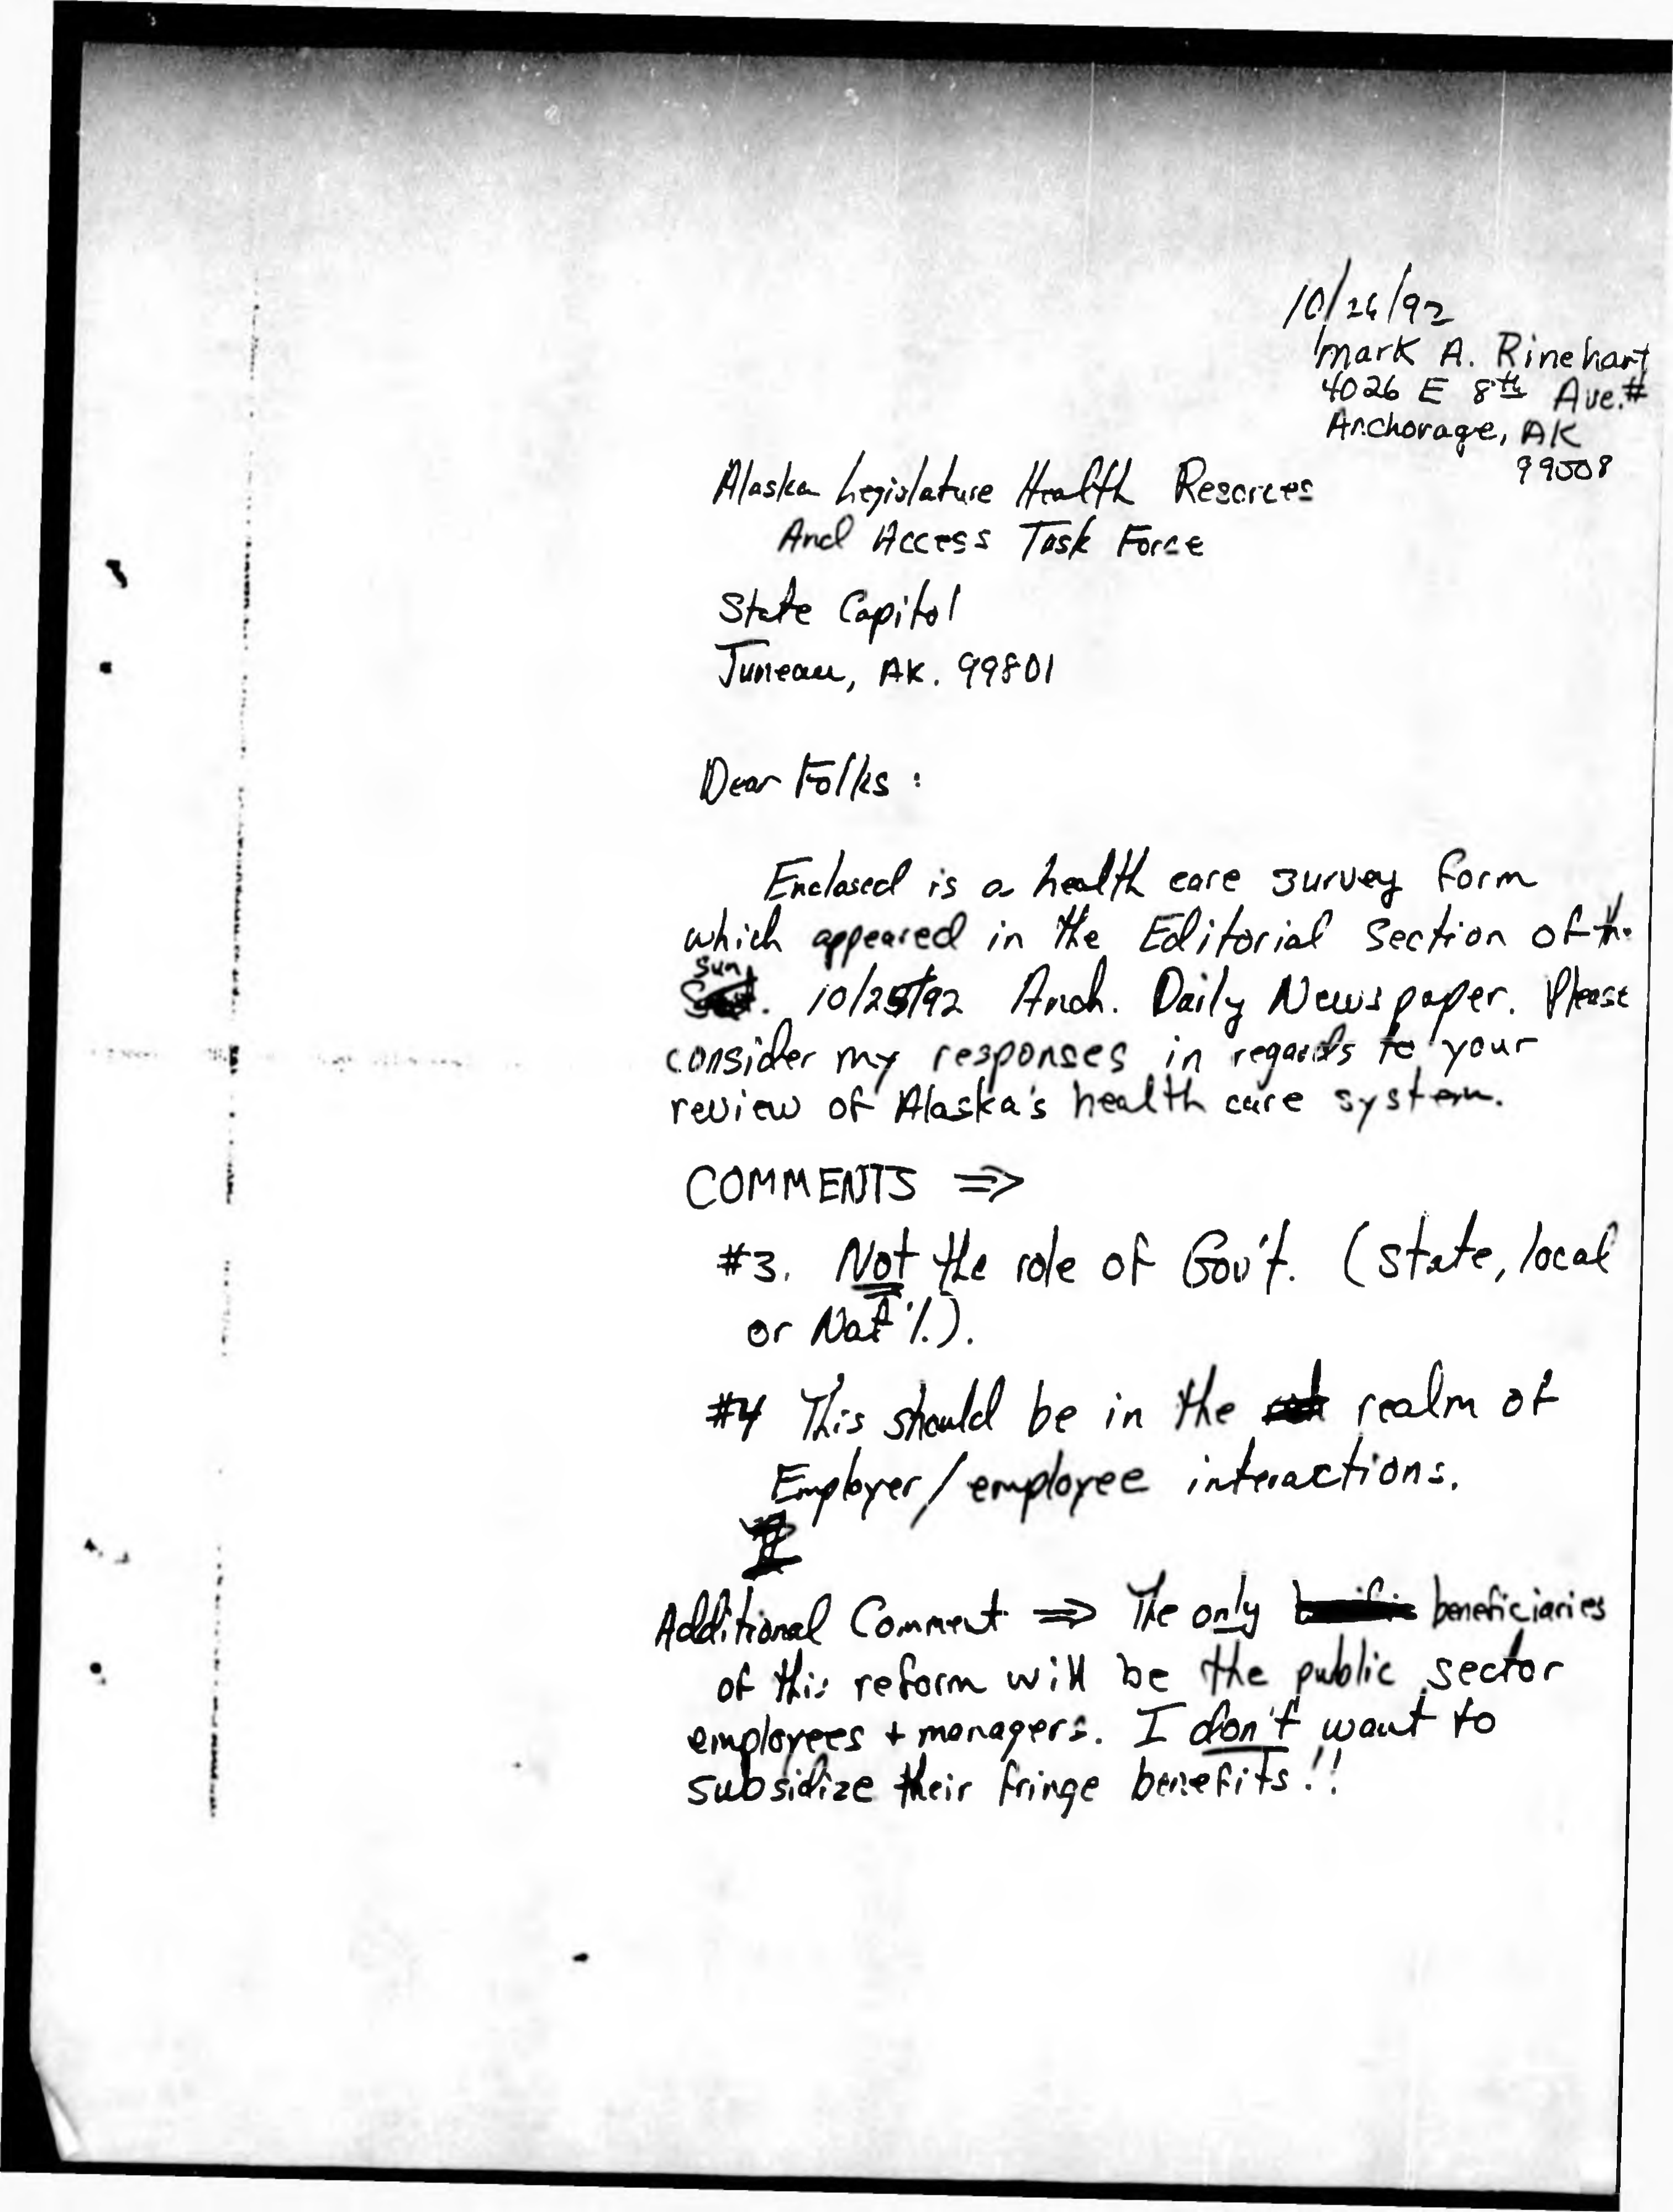 10/26/92
Mark A. Rinehart
4026 E 8th Ave.#
Anchorage, AK
99508
Alaska Legislature Health Resorces
And Access Task Force
State Capitol
Juneau, AK. 99801
Dear Folks :
Enclosed is a health care survey form
which appeared in the Editorial Section of the
Sun. 10/25/92 Anch. Daily Newspaper. Please
consider my responses in regards to your
review of Alaska's health care system.
COMMENTS ⇒
#3. Not the role of Gov't. (state, local
or Nat'l.).
#4 This should be in the realm of
Employer/employee interactions.
Additional Comment ⇒ The only beneficiaries
of this reform will be the public sector
employees + managers. I don't want to
subsidize their fringe benefits!!